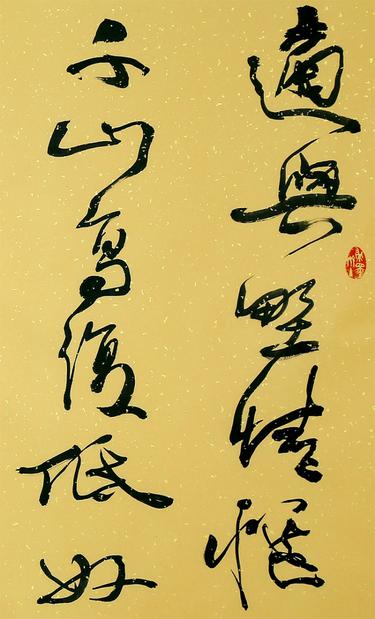 適與野情愜
千山高復低好